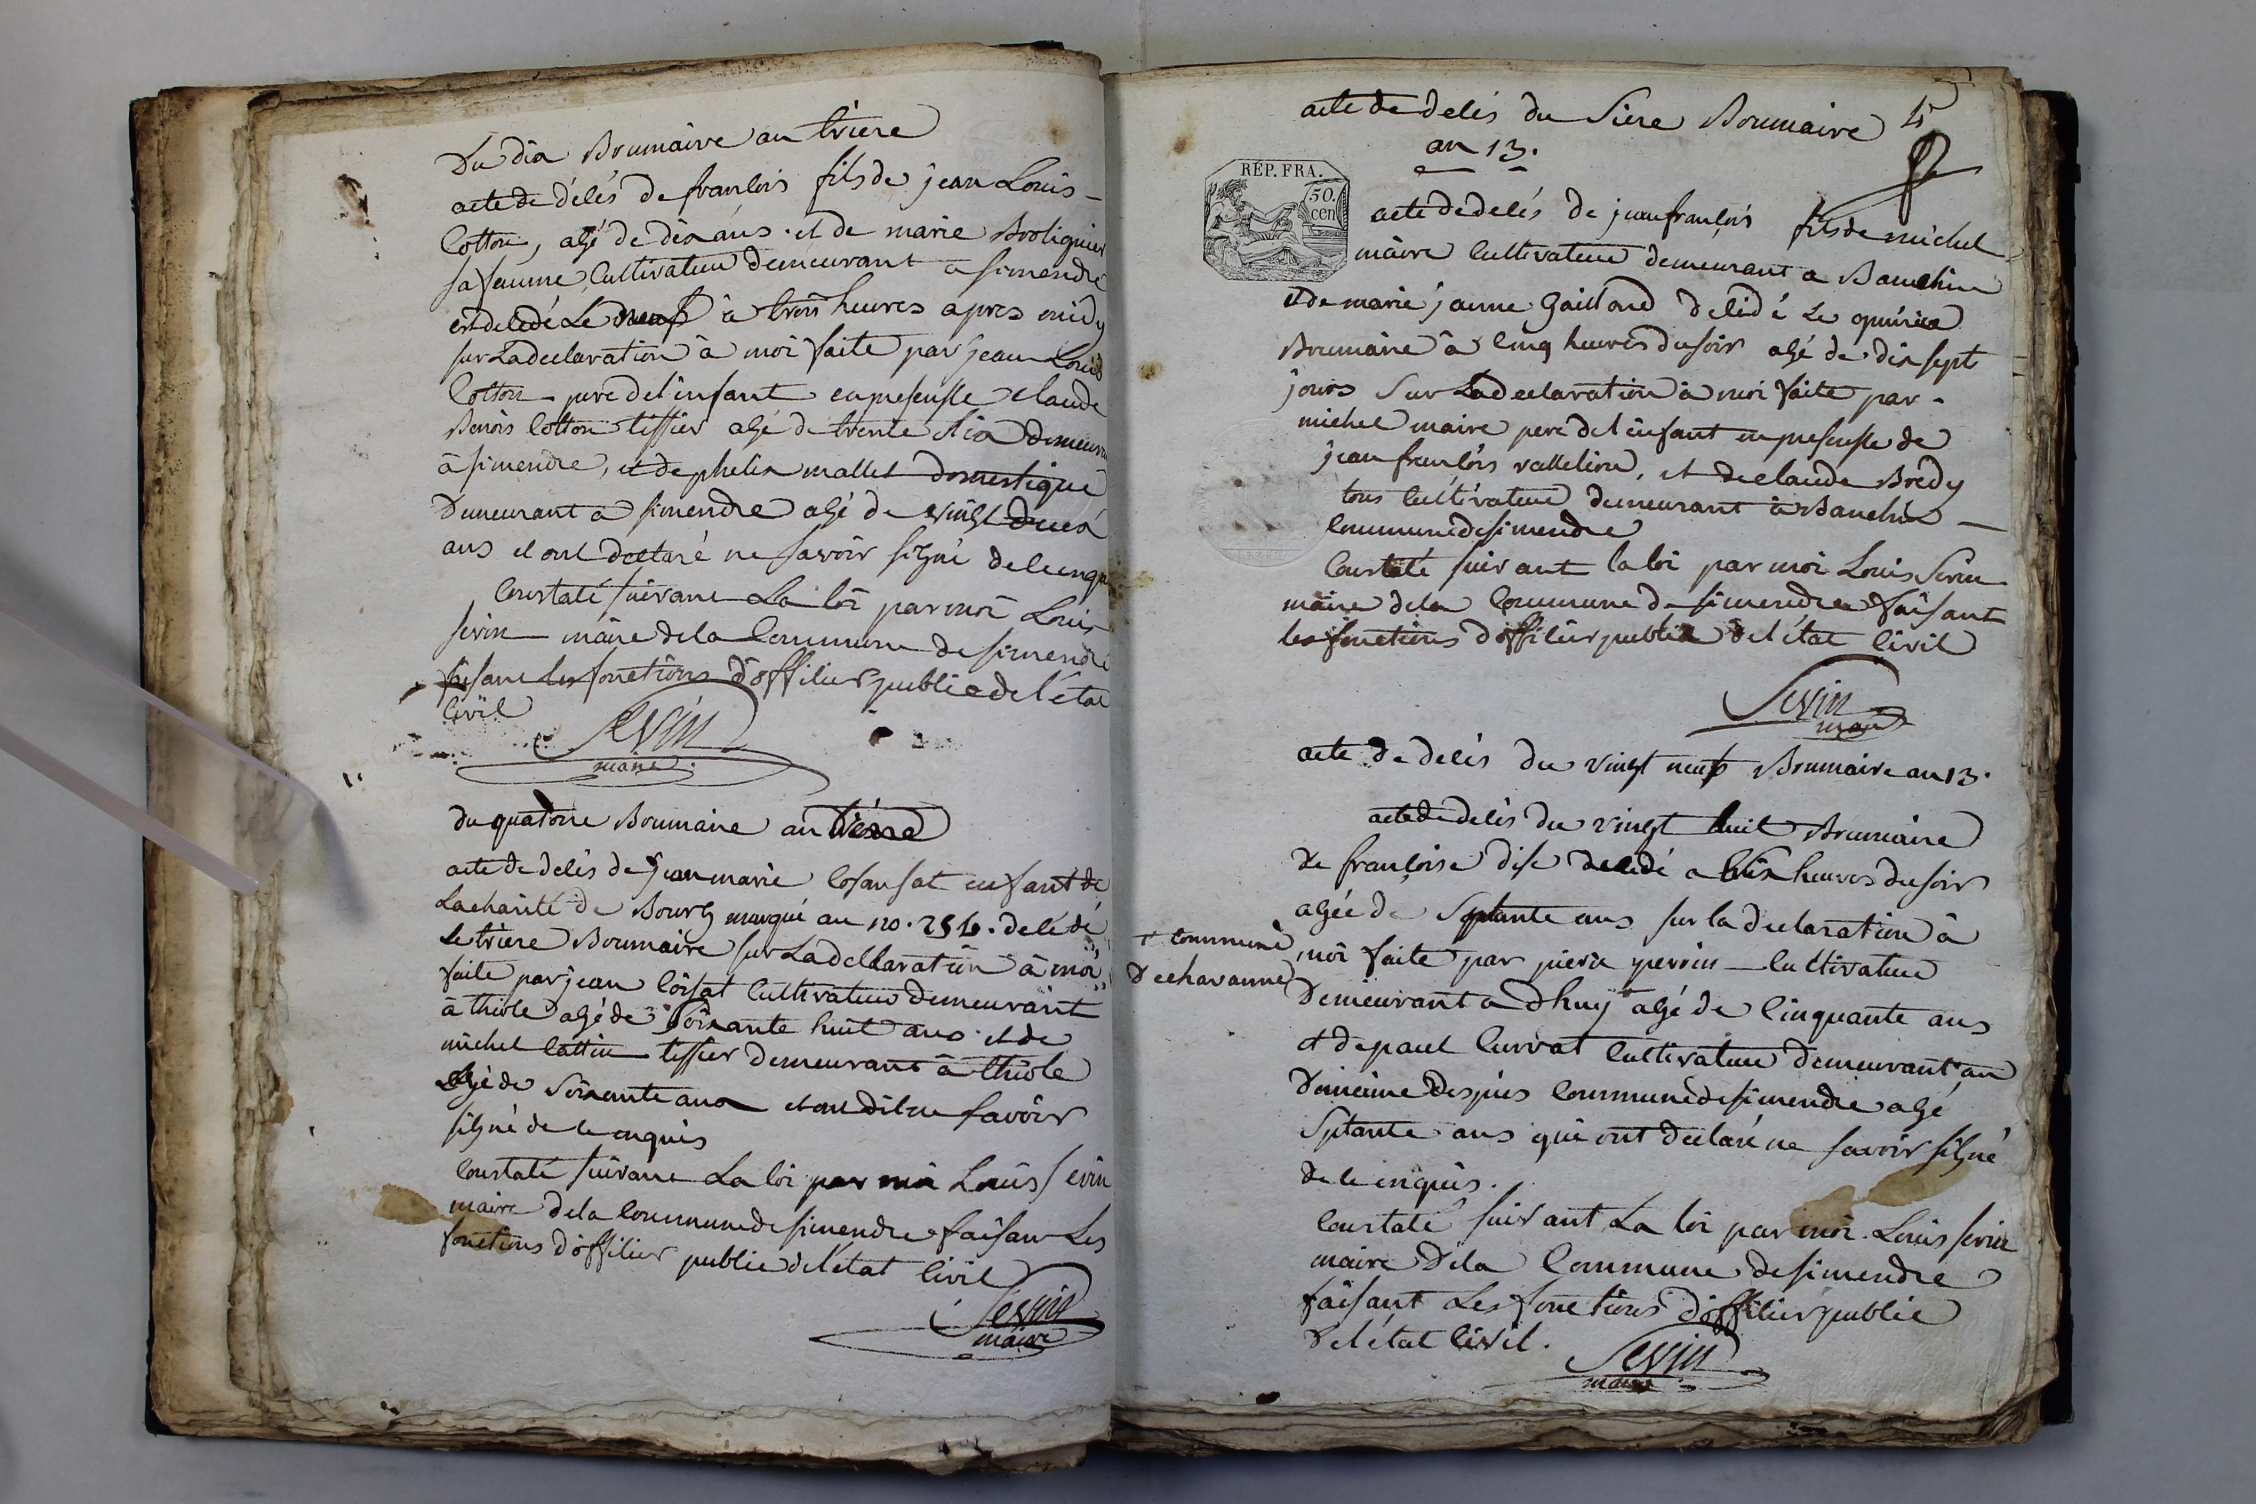 Du dix Brumaire an trieze
acte de délés de franlois fils de jean Louis
Cotton, agé de dix ans et de marie Broliquier
sa femme Cultivateur demeurant a simendre
est delédé Le neuf à trois heures apres midy
sur La declaration à moi faite par jean Louis
Cotton pere de l'infant en presensse claude
Benois Cotton tissier agé de trente
à simendre, et de phelix mallet domestique
Demeurant a simendre agé de vingt deux
ans et ont declaré ne savoir signé de le enquis
Constaté suivant La loi par moi Louis
sevin maire de la Commune de simendre
faisant les fonctions d'offilier public de l'état
Civil
Sevin
maire
du quatorze Brumaire an trieze
acte de delés de jean marie losansat enfant de
La charité de Bourg marqué au no. 256. delédé
le trieze Brumaire sur La declaration à moi
faite par jean loisat Cultivateur demeurant
à thiole agé de soixante huit ans et de
michel Cattin tissier demeurant à thiole
agé de soixante ans et ont dit ne savoir
signé de le enquis
Constaté suivant La loi par moi Louis sevin
maire de la Commune de simendre faisant Les
fonctions d'offilier public de l'état Civil
Sevin
maire
acte de delés du sieze Brumaire
an 13.
RÉP. FRA.
50.
cen
acte de delés de jean franlois fils de michel
maire Cultivateur demeurant a Banchin
et de marie jeanne Gaillard delédé Le quinze
Brumaire à Cinq heures du soir agé de dix sept
jours sur La declaration à moi faite par
michel maire pere de l'enfant en presensse de
jean franlois valletion, et de claude Bredy
tous Cultivateur demeurant à Banchin
Commune de simendre
Constaté suivant la loi par moi Louis Sevin
maire de la Commune de simendre faisant
les fonctions d'offilier public de l'état Civil
Sevin
maire
acte de delés du vingt neuf Brumaire an 13.
acte de delés du vingt huit Brumaire
de françoise dise delédé a heures du soir
agée de Septante ans sur la declaration à
moi faite par pierre perrin Cultivateur
+ commune
De chavanne
Demeurant a Dhuy agé de Cinquante ans
et de paul Curvat Cultivateur demeurant au
Domaine Despies Commune de simendre agé
Septante ans qui ont declaré ne savoir signé
de le enquis.
Constaté suivant La loi par moi Louis sevin
maire De la Commune de simendre
faisant Les fonctions d'offilier public
De l'état Civil.
Sevin
maire